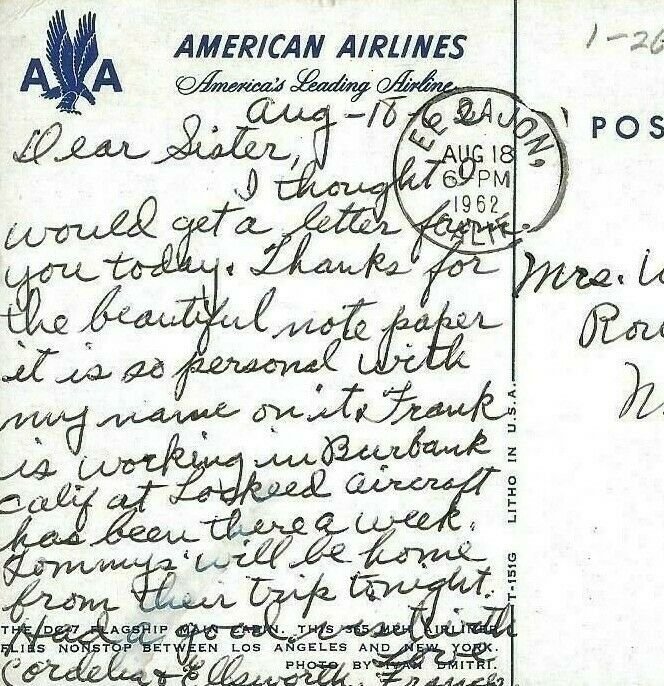 AMERICAN AIRLINES
America's Leading Airline
A A
1-26
Aug-18-62
EL CAJON,
AUG 18
6 PM
1962
CALIF.
POS
Dear Sister,
I thought I
would get a letter from
you today. Thanks for
the beautiful note paper
it is so personal with
my name on it. Frank
is working in Burbank
Calif at Lockeed aircraft
has been there a week.
Tommys will be home
from their trip tonight.
Had a good visit with
Cordelia & Ellsworth. Frances
Mrs.
Rou
THE DC-7 FLAGSHIP MAIN CABIN. THIS 365 MPH AIRLINER
FLIES NONSTOP BETWEEN LOS ANGELES AND NEW YORK.
PHOTO BY IVAN DMITRI.
T-151G LITHO IN U.S.A.